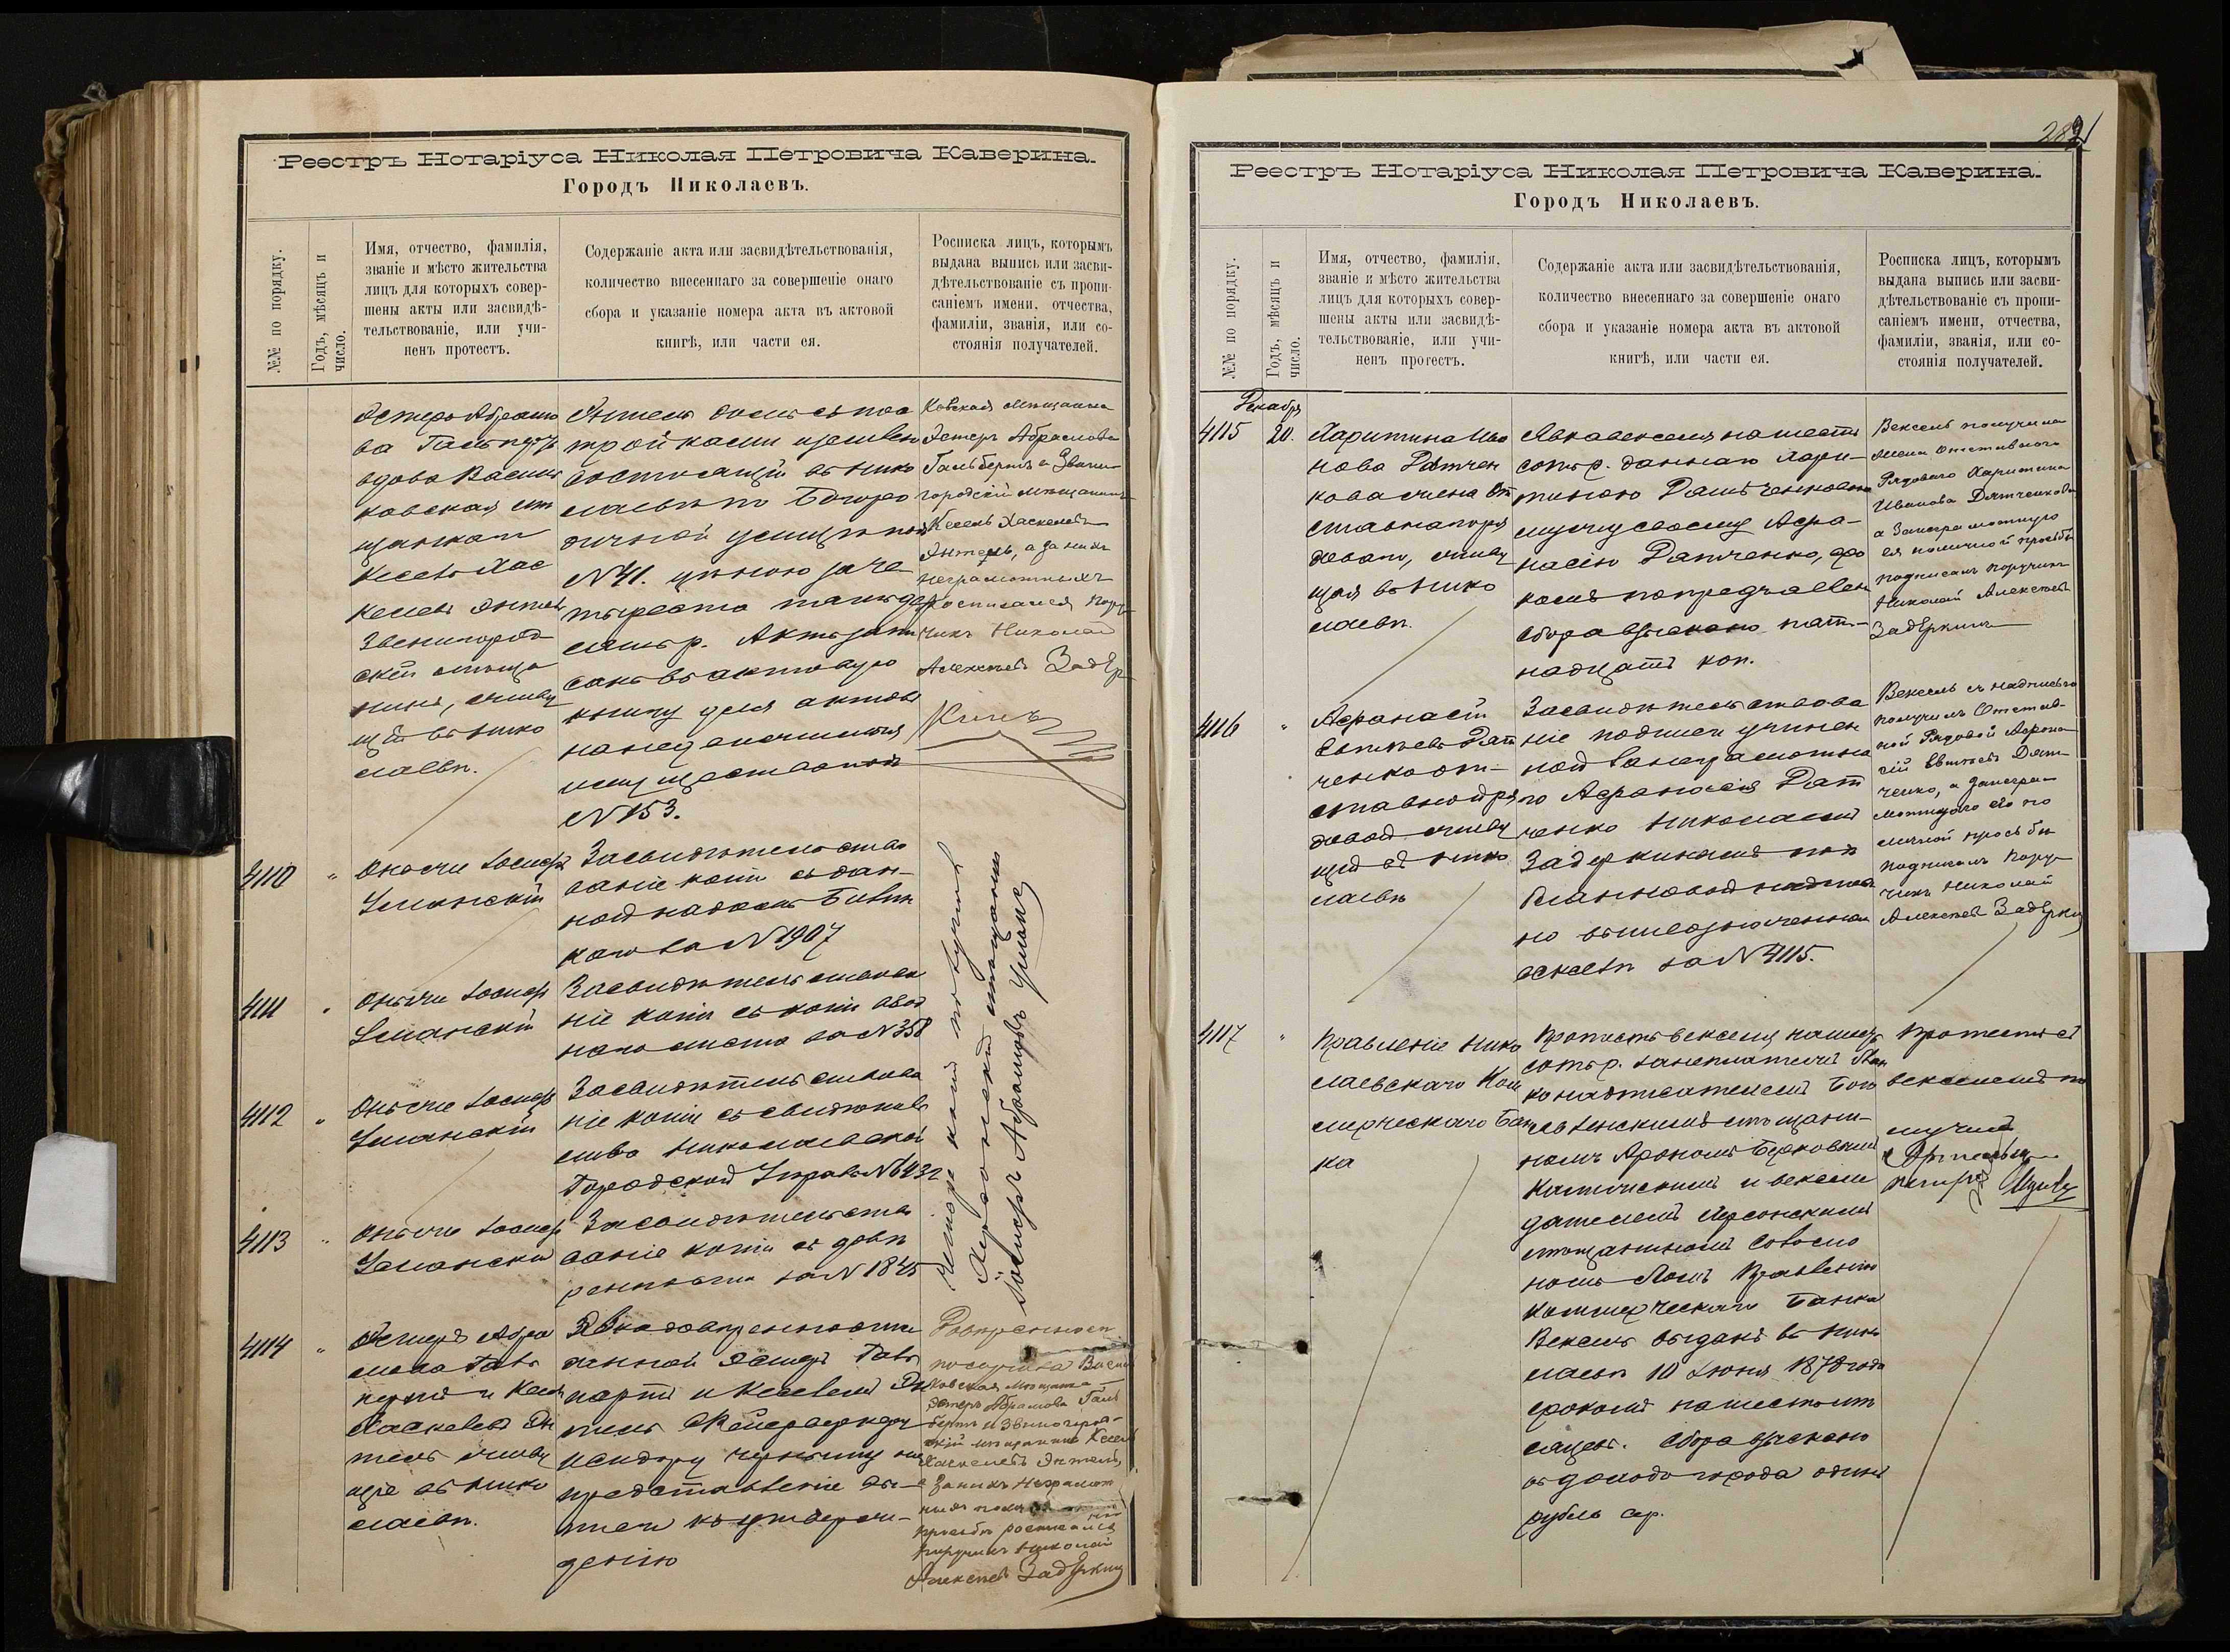 Реестръ Нотаріуса Николая Петровича Каверина.
Городъ Николаевъ.
№№ по порядку.
Годъ, мѣсяцъ и
число.
Имя, отчество, фамилія,
званіе и мѣсто жительства
лицъ для которыхъ совер-
шены акты или засвидѣ-
тельствованіе, или учи-
ненъ протестъ.
Содержаніе акта или засвидѣтельствованія,
количество внесеннаго за совершеніе онаго
сбора и указаніе номера акта въ актовой
книгѣ, или части ея.
Росписка лицъ, которымъ
выдана выпись или засви-
дѣтельствованіе съ пропи-
саніемъ имени. отчества,
фамиліи, званія, или со-
стоянія получателей.
Эстеръ Абрамо
ва
вдова Василь
ковская мѣ
щанка и
Кесель Хас
келевъ Энтель
Звенигород
скій мѣща
нинъ, живу
щій въ Нико
лаевѣ.
домъ съ пос
тройками
состоящій въ Нико
лаевѣ по
№ 41. цѣною за че
тыреста
р. Актъ запи
санъ въ актовую
книгу для актовъ
на недвижимыя
имущества
№ 153.
Ковская мѣщанка
Эстеръ Абрамова
Гальбертъ и Звени-
городскій мѣщанинъ
Кесель Хаскелевъ
Энтель, а за нихъ
неграмотныхъ
росписался Пору-
чикъ Николай
Алексѣевъ Задер-
кинъ
4110
"
Онъ же Іосифъ
Уманскій
Засвидѣтельство
ваніе копіи съ дан-
ной
за № 1907
4111
"
Онъ же Іосифъ
Уманскій
Засвидѣтельствова
ніе копіи съ копіи ввод
наго листа за № 358
4112
"
Онъ же Іосифъ
Уманскій
Засвидѣтельствова
ніе копіи съ свидѣтель
ства Николаевской
Городской Управы № 6432
4113
"
Онъ же Іосифъ
Уманскій
Засвидѣтельство
ваніе копіи съ довѣ
ренности за № 1845
Четыре копіи получилъ
Херсонскій мѣщанинъ
Іосифъ Абрамовъ Уманс
4114
"
Эстеръ Абра
мова
и Кесель
Хаскелевъ Эн
тель живу
щіе въ Нико
лаевѣ.
Явка довѣренности
данной Эстеръ
и Кеселемъ Эн
телемъ
на
представленіе
къ утверж-
денію
Довѣренность
получила Василь
ковская мѣщанка
Эстеръ Абрамова Галь
бертъ и Звенигород-
скій мѣщанинъ Кесель
Хаскелевъ Энтель,
а за нихъ неграмот
ныхъ
просьбѣ росписался
Поручикъ Николай
Алексѣевъ Задеркинъ
Реестръ Нотаріуса Николая Петровича Каверина.
Городъ Николаевъ.
№№ по порядку.
Годъ, мѣсяцъ и
число.
Имя, отчество, фамилія,
званіе и мѣсто жительства
лицъ для которыхъ совер-
шены акты или засвидѣ-
тельствованіе, или учи-
ненъ протестъ.
Содержаніе акта или засвидѣтельствованія,
количество внесеннаго за совершеніе онаго
сбора и указаніе номера акта въ актовой
книгѣ, или части ея.
Росписка лицъ, которымъ
выдана выпись или засви-
дѣтельствованіе съ пропи-
саніемъ имени, отчества,
фамиліи, званія, или со-
стоянія получателей.
Декабря
4115
20.
Харитина Ива
нова Дятчен
кова жена От
ставнаго ря
доваго, живу
щая въ Нико
лаевѣ.
Явка векселя на шесть
сотъ р. даннаго Хари-
тиною Дятченковою
мужу своему Афа-
насію Дятченко,
сбора взыскано пят-
надцать коп.
Вексель получила
жена Отставного
Рядового Харитина
Иванова Дятченкова
а за неграмотную
ея по личной просьбѣ
подписалъ поручикъ
Николай Алексѣевъ
Задеркинъ
4116
"
Афанасій
Евтѣевъ Дят
ченко от-
ставной ря
довой живу
щій въ Нико
лаевѣ
Засвидѣтельствова
ніе подписи учинен
ной за неграмотна
го Афанасія Дят
ченко Николаемъ
Задеркинымъ
бланковой надписи
на вышеозначенномъ
векселѣ за № 4115.
Вексель съ надписью
получилъ Отстав-
ной Рядовой Афана-
сій Евтѣевъ Дят-
ченко, а за негра-
мотнаго его по
личной просьбѣ
подписалъ Пору-
чикъ Николай
Алексѣевъ Задеркинъ
4117
"
Правленіе Нико
лаевскаго Ком
мерческаго Бан
ка
Протестъ векселя на шесть
сотъ р. за неплатежъ
надписателемъ
мѣщани-
номъ Арономъ Берковымъ
и векселе
дателемъ Херсонскимъ
мѣщаниномъ
Правленію
Коммерческаго Банка
Вексель выданъ въ Нико
лаевѣ 10 Іюня 1878 года
срокомъ на шесть мѣ
сяцевъ. Сбора взыскано
въ доходъ города одинъ
рубль сер.
Протестъ съ
векселемъ по
лучилъ